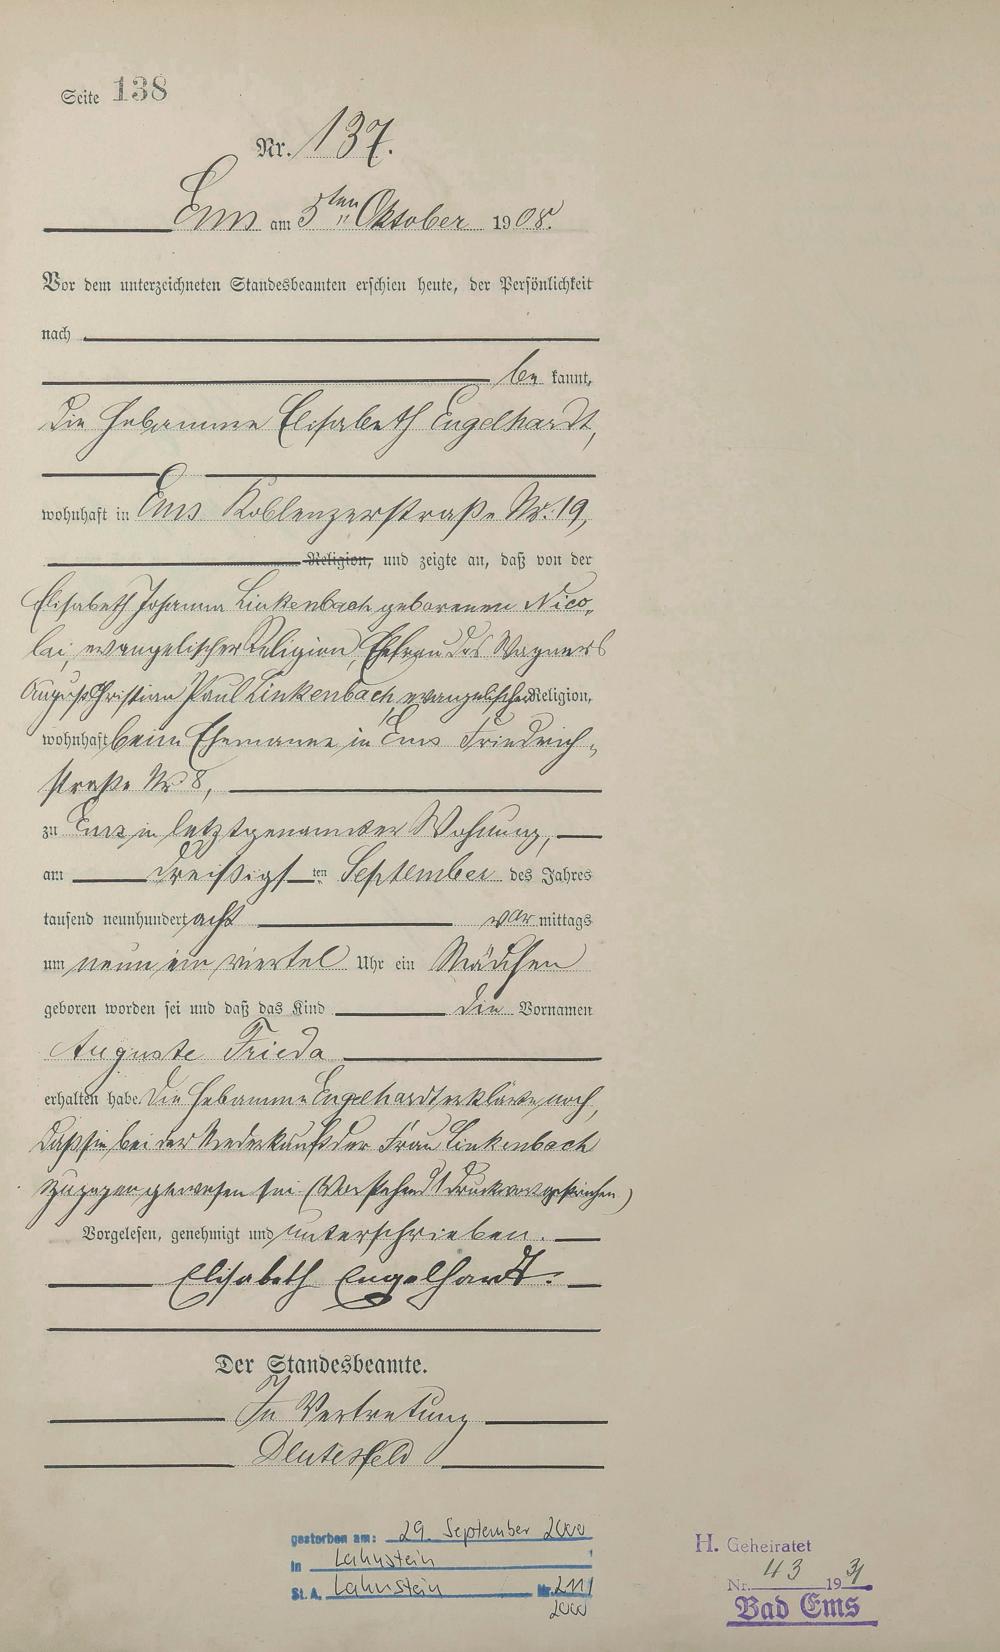 Seite 138
Nr. 137.
Ems am 5ten Oktober 1908.
Vor dem unterzeichneten Standesbeamten erschien heute, der Persönlichkeit
nach
be kannt,
die Hebamme Elisabeth Engelhardt,
wohnhaft in Ems Koblenzerstraße Nr. 19,
Religion, und zeigte an, daß von der
Elisabeth Johanna Linkenbach geborenen Nico-
lai, evangelischer Religion, Ehefrau des Wagners
August Christian Paul Linkenbach, evangelischer Religion,
wohnhaft beim Ehemanne in Ems Friedrich-
straße Nr 8,
zu Ems in letztgenannter Wohnung,
am dreißigsten September des Jahres
tausend neunhundert acht vor mittags
um neun ein viertel Uhr ein Mädchen
geboren worden sei und daß das Kind die Vornamen
Auguste Frieda
erhalten habe. Die Hebamme Engelhardt erklärte noch,
daß sie bei der Niederkunft der Frau Linkenbach
zugegen gewesen sei (Vorstehend 1 Druckwort gestrichen)
Vorgelesen, genehmigt und unterschrieben.
Elisabeth Engelhardt.
Der Standesbeamte.
In Vertretung
gestorben am: 29. September 2000
in Lahnstein
St. A. Lahnstein Nr. 211/
2000
H. Geheiratet
Nr. 43 1931
Bad Ems